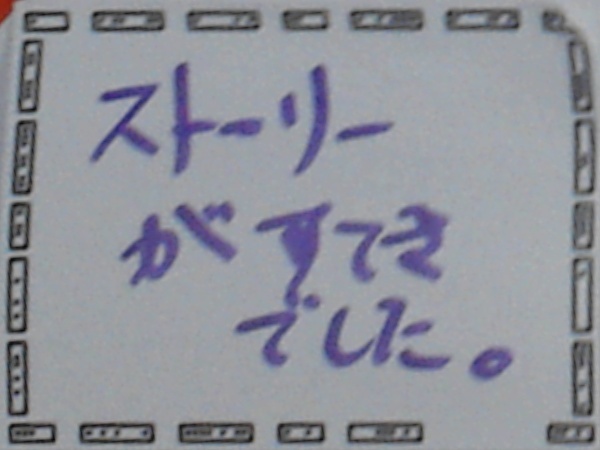 ストーリー
がすてき
でした。